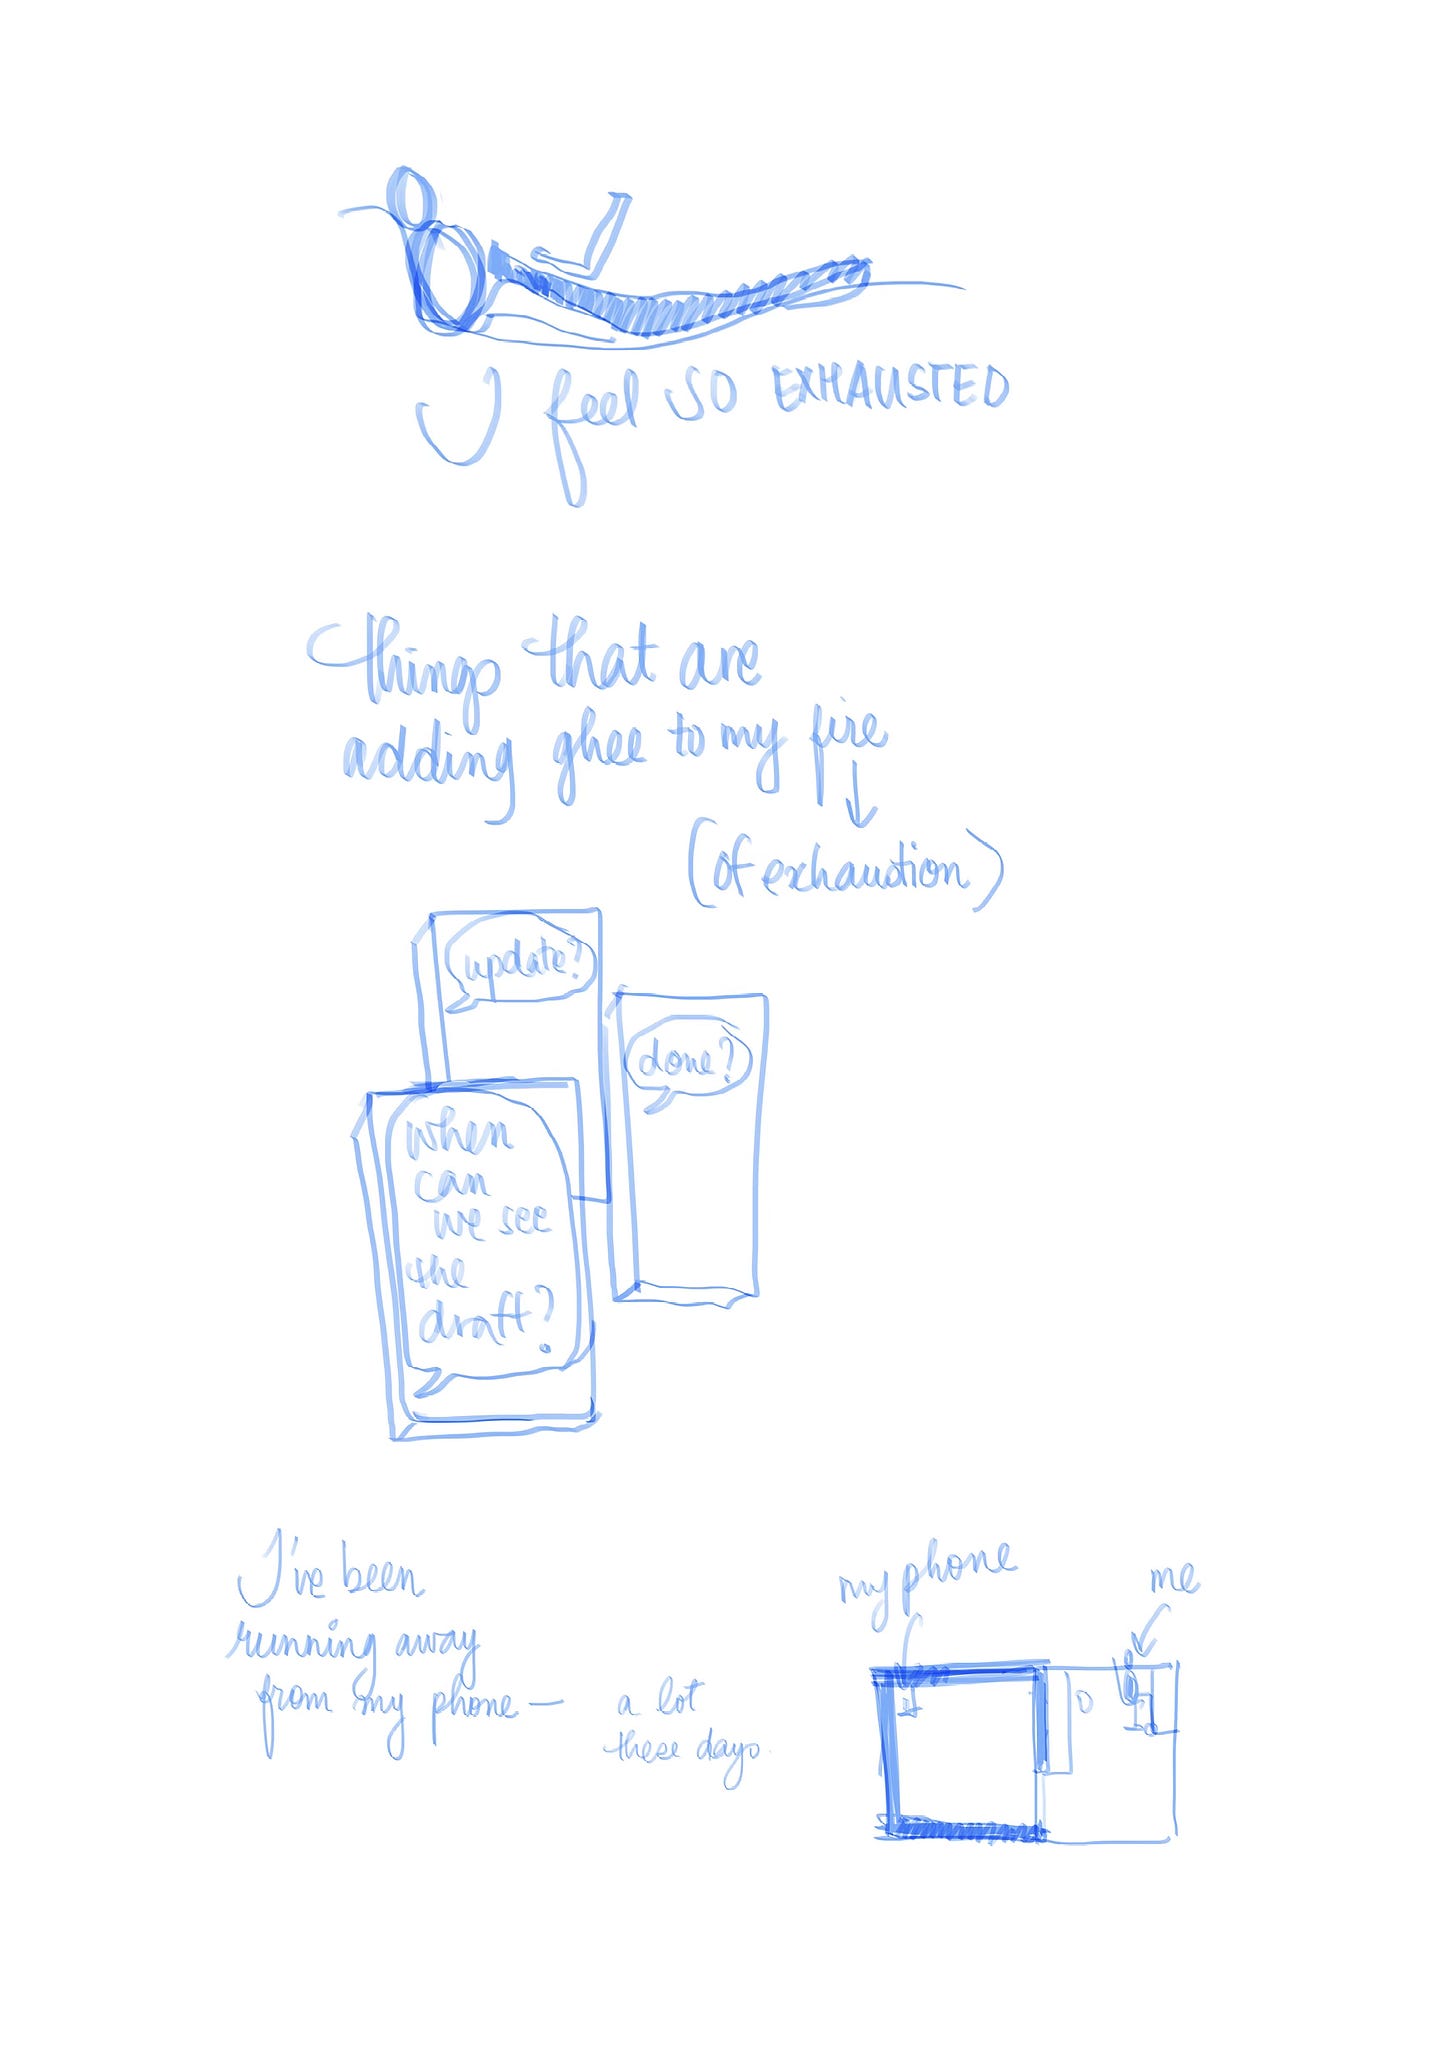 I feel SO EXHAUSTED
things that are
adding ghee to my fire
(of exhaustion)
update?
done?
when
can
we see
the
draft?
I've been
running away
from my phone —
a lot
these days.
my phone
me